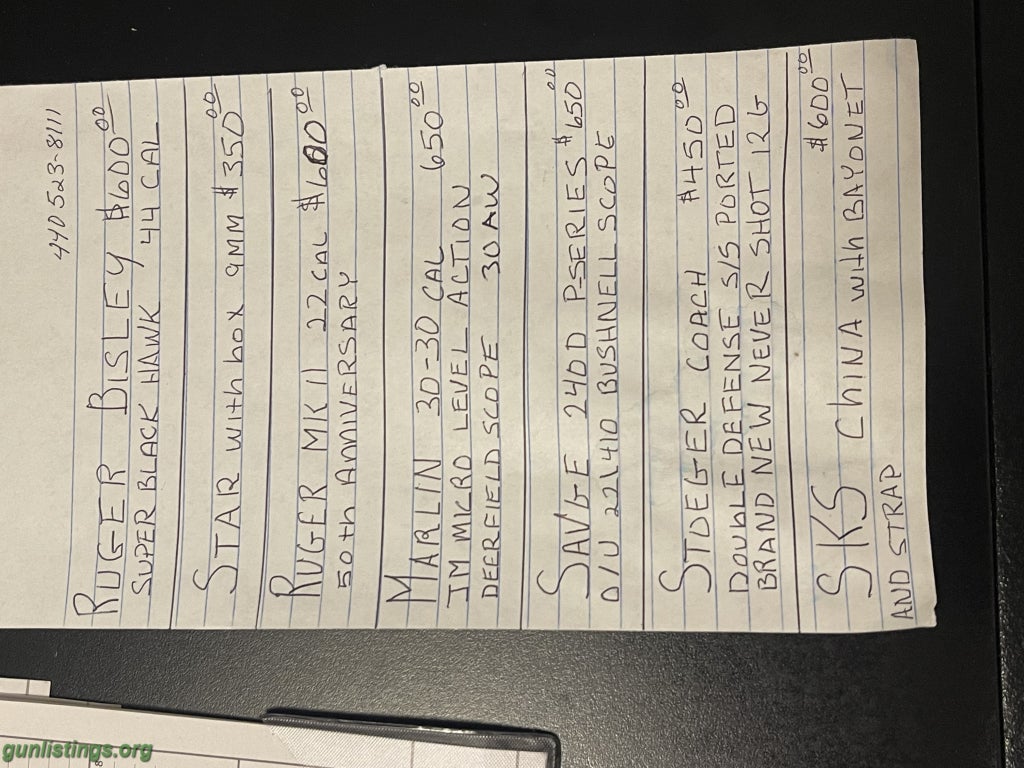 440 523-8111
RUGER BISLEY $600.00
SUPER BLACK HAWK 44 CAL
STAR with box 9MM $350.00
RUGER MK II 22 CAL $600.00
50th ANNIVERSARY
MARLIN 30-30 CAL 650.00
JM MICRO LEVEL ACTION
DEERFIELD SCOPE 30 AW
SAVGE 24OD P-SERIES $650.00
O/U 22\410 BUSHNELL SCOPE
STOEGER COACH $450.00
DOUbLE DEFENSE S/S PORTED
BRAND NEW NEVER SHOT 12G
$600.00
SKS ChINA with BAYONET
AND STRAP
gunlistings.org